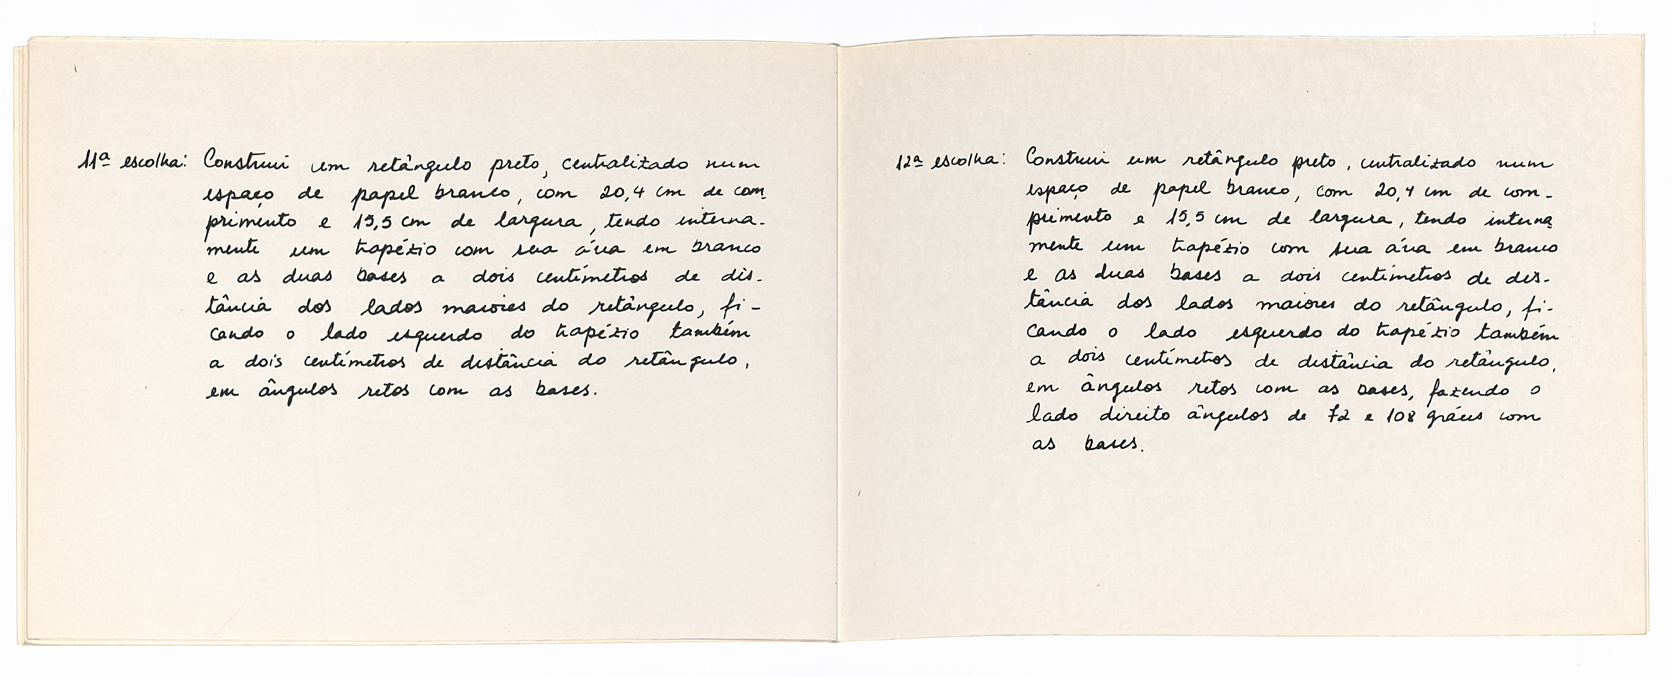 11ª escolha: Construi um retângulo preto, centralizado num
espaço de papel branco, com 20,4 cm de com-
primento e 15,5 cm de largura, tendo interna-
mente um trapézio com sua área em branco
e as duas bases a dois centímetros de dis-
tância dos lados maiores do retângulo, fi-
cando o lado esquerdo do trapézio também
a dois centímetros de distância do retângulo,
em ângulos retos com as bases.
12ª escolha: Construi um retângulo preto, centralizado num
espaço de papel branco, com 20,4 cm de com-
primento e 15,5 cm de largura, tendo interna-
mente um trapézio com sua área em branco
e as duas bases a dois centímetros de dis-
tância dos lados maiores do retângulo, fi-
cando o lado esquerdo do trapézio também
a dois centímetros de distância do retângulo,
em ângulos retos com as bases, fazendo o
lado direito ângulos de 72 e 108 gráus com
as bases.